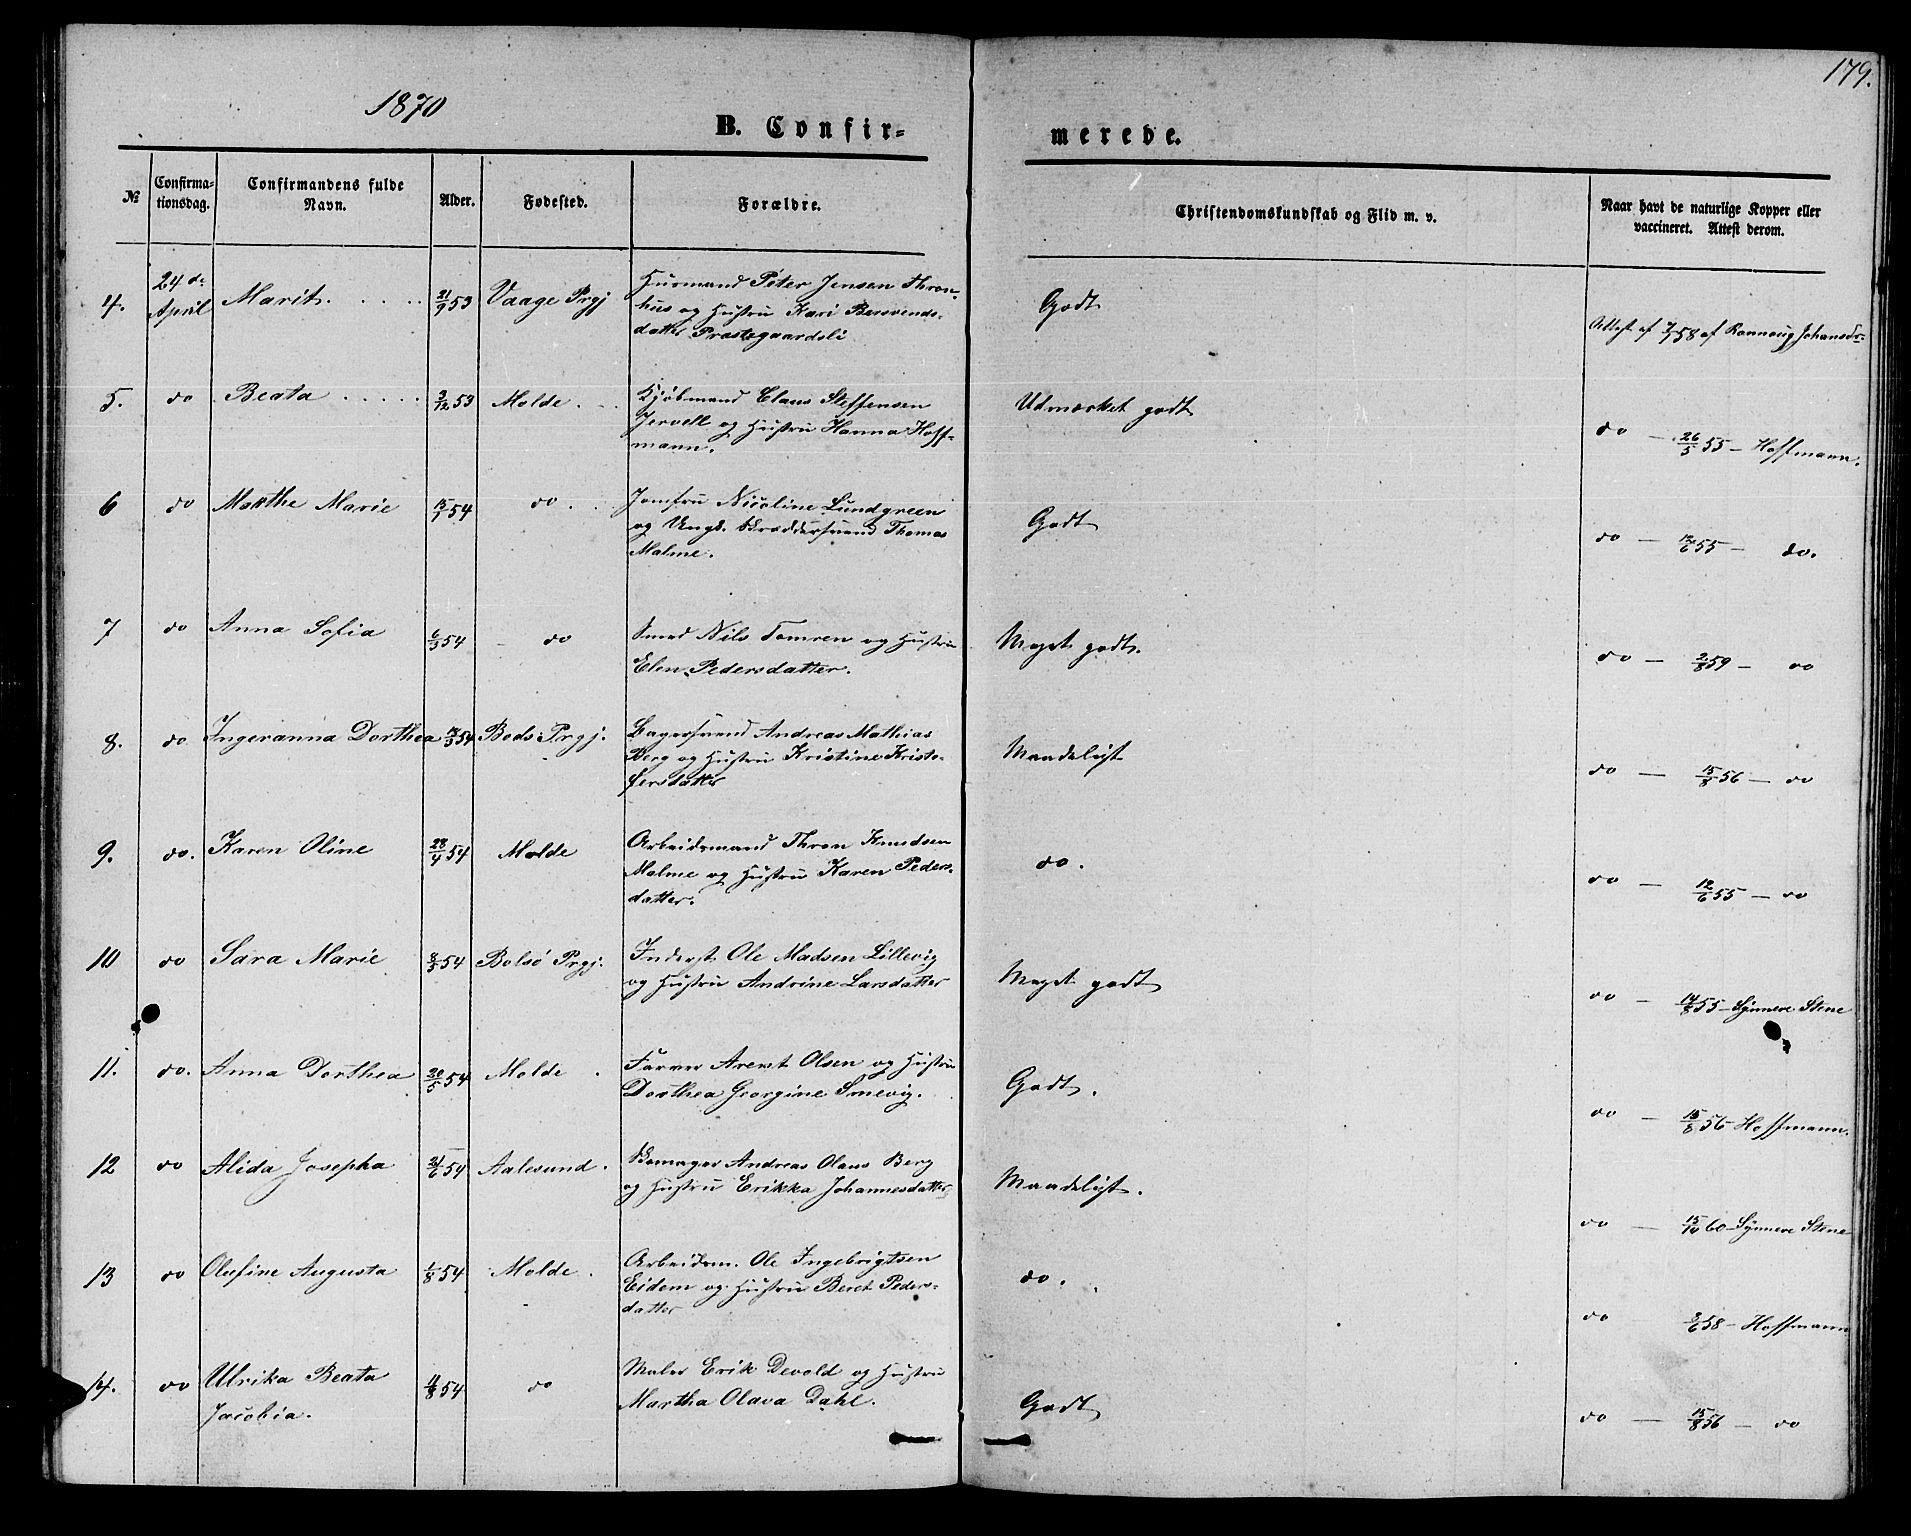 179.
1870
B. Confir-
merede.
№
Confirma-
tionsdag.
Confirmandens fulde
Navn.
Alder.
Fødested.
Forældre.
Christendomskundskab og Flid m. v.
Naar havt de naturlige Kopper eller
vaccineret. Attest derom.
4. 24de April Marit 21/9 53 Vaage Prgj
Husmand Peter Jensen Thron-
hus og Hustru Kari Bersvends-
datter Præstegaardsli
Godt
Attest af 58 af Rannoug Johansdr
5. do Beata 3/12 53 Molde
Kjøbmand Claus Steffensen
Jervell og Hustru Hanna Hoff-
mann.
Udmærket godt
do — 26/5 55 — Hoffmann.
6 do Marthe Marie 15/1 54 do.
Jomfru Nicoline Lundgreen
og Ungk. Skræddersvend Thomas
Malme.
Godt
do — 12/6 55 — do.
7 do Anna Sofia 6/3 54 do
Smed Nils Tomren og Hustru
Elen Pedersdatter.
Meget godt.
do — 2/8 59 — do
8. do Ingeranna Dorthea 54 Bods Prgj.
Bagersvend Andreas Mathias
Berg og Hustru Kristine Kristo-
fersdatter
Maadeligt
do — 15/8 56 — do
9. do. Karen Oline 28/4 54 Molde
Arbeidsmand Thron Knudsen
Malme og Hustru Karen Peders-
datter.
do.
do — 12/6 55 — do
10 do Sara Marie 8/5 54 Bolsø Prgj.
Inderst Ole Madsen Lillevig
og Hustru Andrine Larsdatter
Meget godt
do — 14/8 55 — Synneve Stene
11. do. Anna Dorthea 20/5 54 Molde
Farver Arent Olsen og Hustru
Dorthea Georgine Smevig.
Godt.
do — 15/8 56 Hoffmann.
12 do Alida Josepha 21/6 54 Aalesund.
Skomager Andreas Olaus Berg
og Hustru Erikka Johannesdatter
Maadeligt.
do — 15/10 60 — Synneve Stene
13 do Olufine Augusta 1/8 54 Molde.
Arbeidsm. Ole Ingebrigtsen
Eidem og Hustru Beret Peders-
datter
do.
do 3/6 58 — Hoffmann
14. do Ulrika Beata
Jacobia. 4/8 54 do
Maler Erik Devold og Hustru
Martha Olava Dahl.
Godt
do — 15/8 56 — do